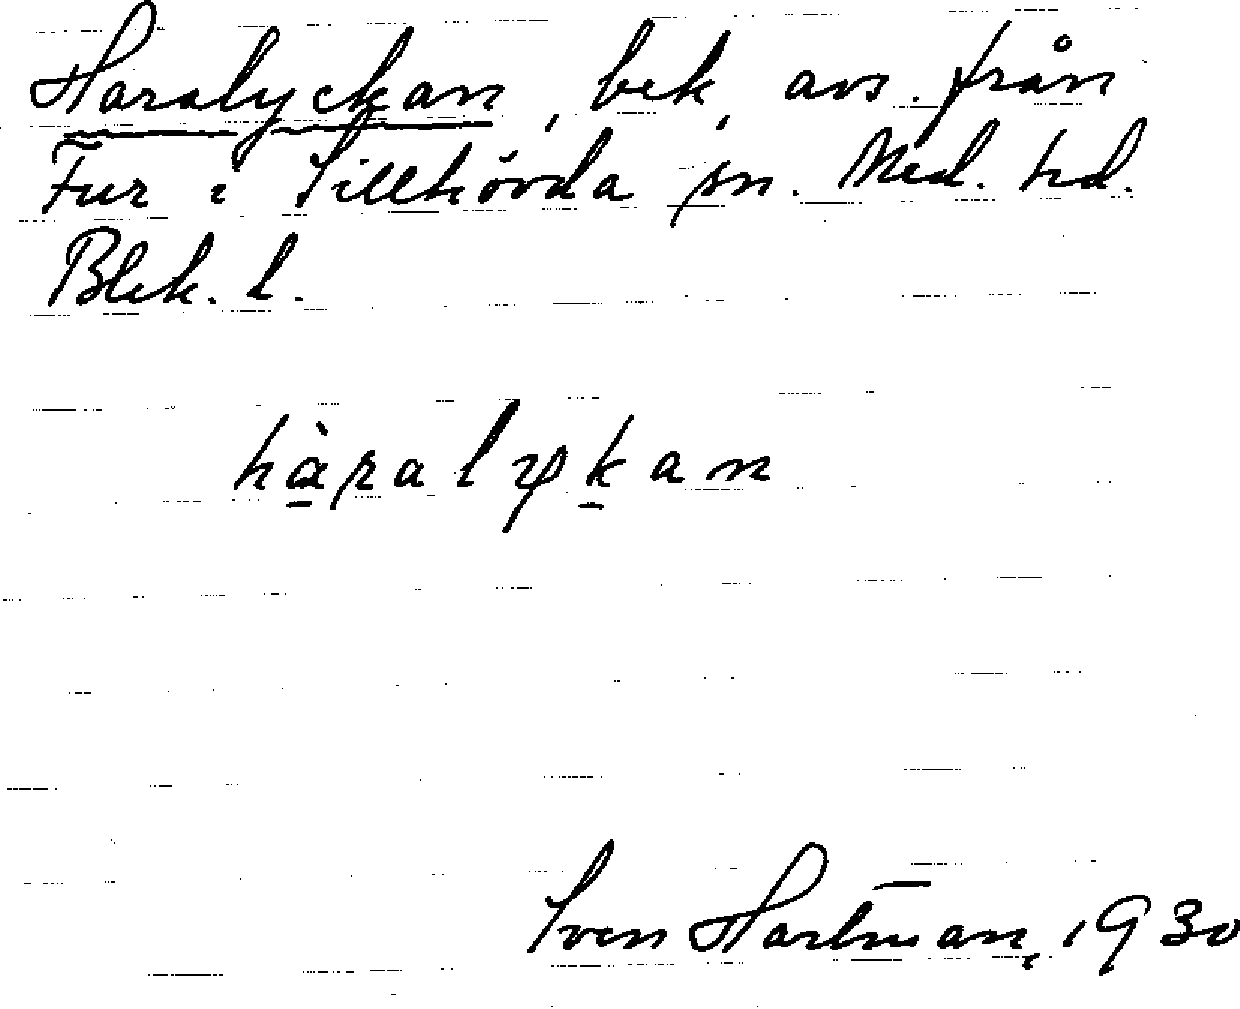 Haralyckan, bek, avs. från
Fur i Tillhövda sn. Med. hd.
Blek. l.
hàralykan
Sven Hartman, 1930